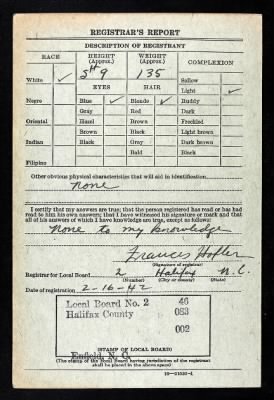 REGISTRAR'S REPORT
DESCRIPTION OF REGISTRANT
RACE HEIGHT (Approx.) WEIGHT (Approx.) COMPLEXION
5 ft 9 135
White ✓ Sallow
EYES HAIR Light ✓
Negro Blue ✓ Blonde ✓ Ruddy
Gray Red Dark
Oriental Hazel Brown Freckled
Brown Black Light brown
Indian Black Gray Dark brown
Bald Black
Filipino
Other obvious physical characteristics that will aid in identification
None
I certify that my answers are true; that the person registered has read or has had
read to him his own answers; that I have witnessed his signature or mark and that
all of his answers of which I have knowledge are true, except as follows:
None to my knowledge
Frances Hofler
(Signature of registrar)
Registrar for Local Board 2 Halifax N.C.
(Number) (City or county) (State)
Date of registration 2-16-42
Local Board No. 2 46
Halifax County 083
002
Enfield, N. C.
(STAMP OF LOCAL BOARD)
(The stamp of the Local Board having jurisdiction of the registrant
shall be placed in the above space)